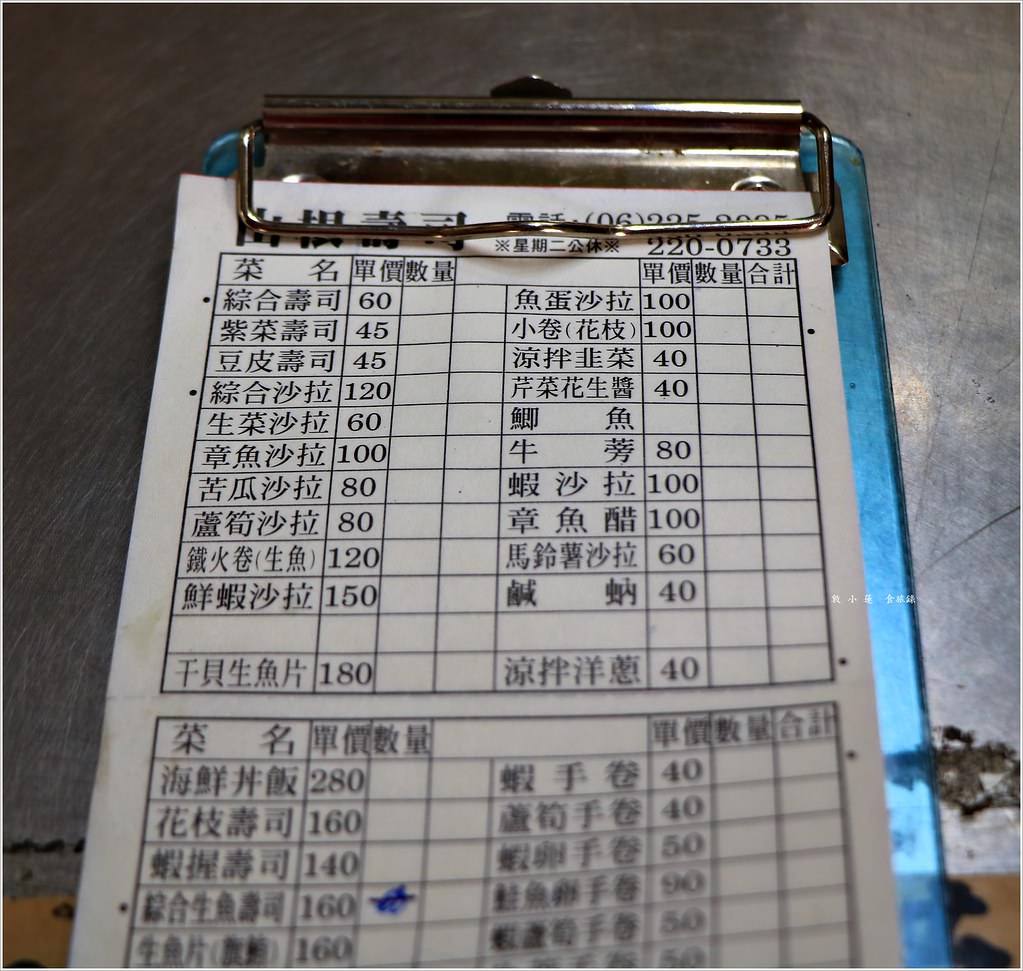 山根壽司 電話:(06)225-
※星期二公休※ 220-0733
菜 名 單價 數量 單價 數量 合計
綜合壽司 60 魚蛋沙拉 100
紫菜壽司 45 小卷(花枝) 100
豆皮壽司 45 涼拌韭菜 40
綜合沙拉 120 芹菜花生醬 40
生菜沙拉 60 鯽 魚
章魚沙拉 100 牛 蒡 80
苦瓜沙拉 80 蝦沙拉 100
蘆筍沙拉 80 章魚醋 100
鐵火卷(生魚) 120 馬鈴薯沙拉 60
鮮蝦沙拉 150 鹹 蚋 40
干貝生魚片 180 涼拌洋蔥 40
菜 名 單價 數量 單價 數量 合計
海鮮丼飯 280 蝦手卷 40
花枝壽司 160 蘆筍手卷 40
蝦握壽司 140 蝦卵手卷 50
綜合生魚壽司 160 鮭魚卵手卷 90
生魚片(旗鮪) 160 蝦蘆筍手卷 50
50
敦小蓮 食旅錄